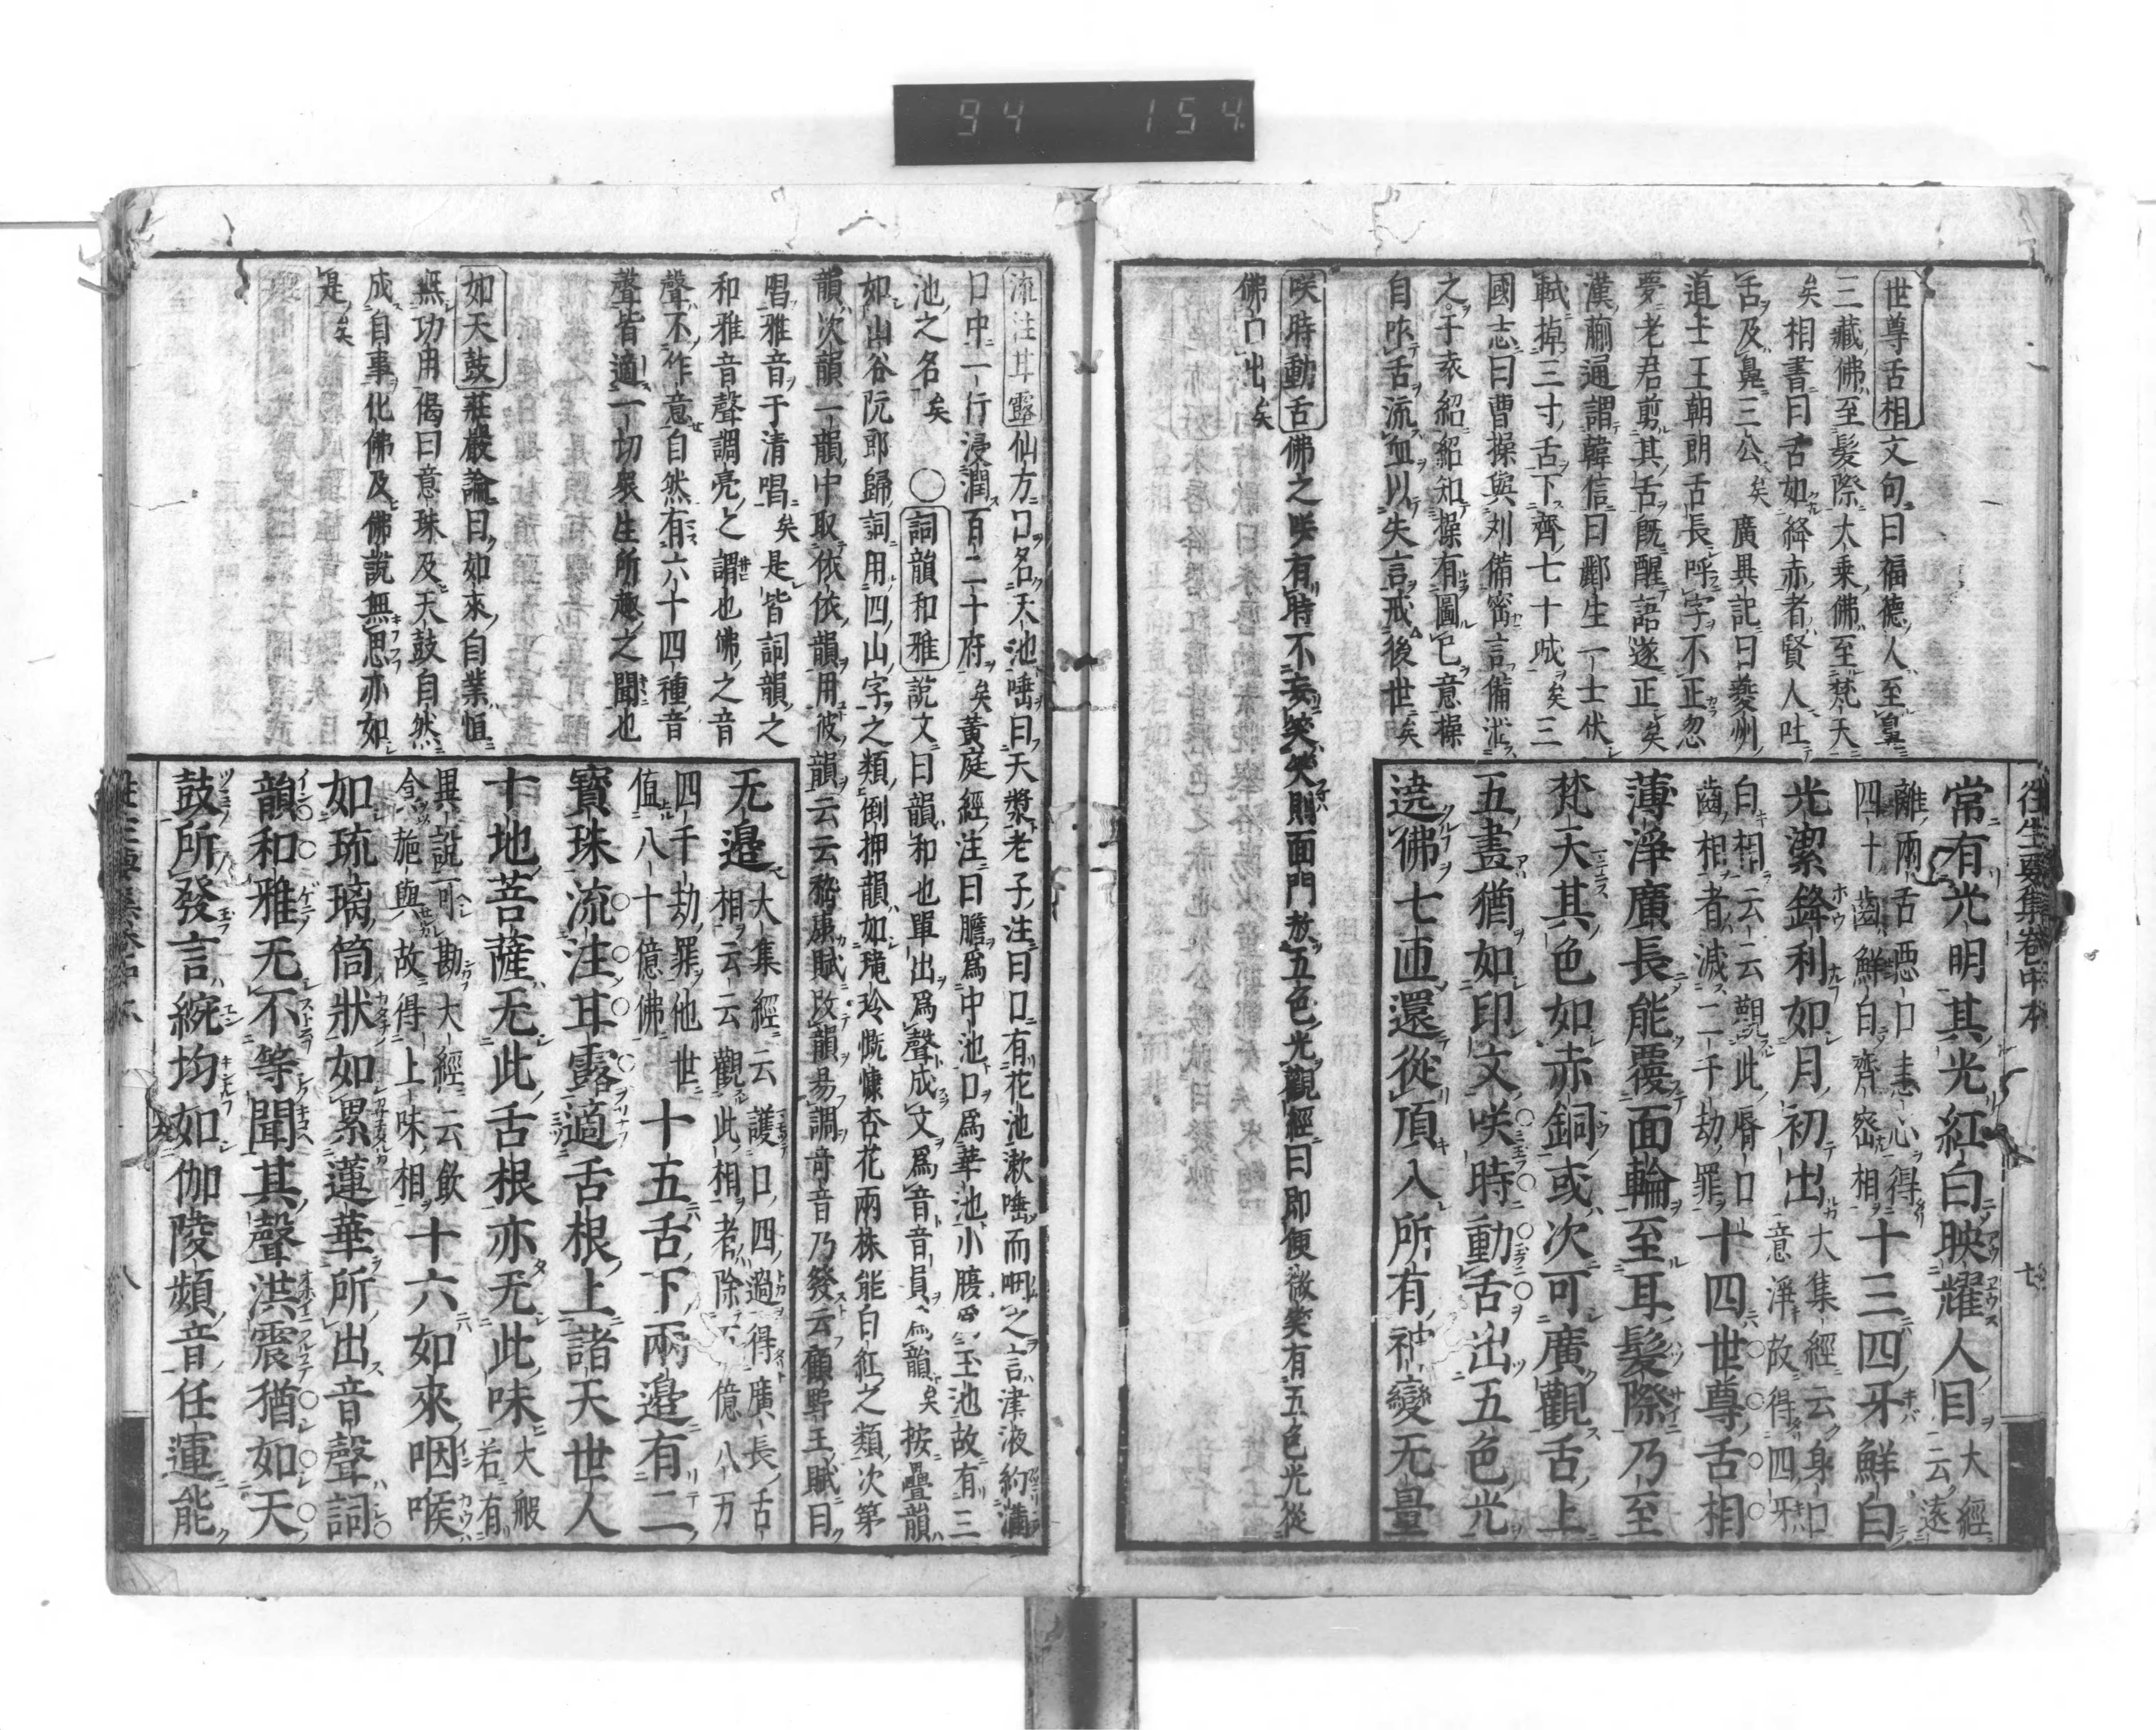 94 154
世尊舌相文句曰福德人至鼻
三藏佛至髮際大乘佛至梵天
矣相書曰舌如絳赤者賢人吐
舌及鼻三公矣廣異記曰夔州
道士王朝朗舌長呼字不正忽
夢老君剪其舌既醒語遂正矣
漢蒯通謂韓信曰酈生一士伏
軾掉三寸舌下齊七十城矣三
國志曰曹操與刘備密言備泄
之于袁紹紹知操有圖已意操
自咋舌流血以失言戒後世矣
咲時動舌佛之咲有時不妄笑笑則面門放五色光觀經曰即便微笑有五色光從
佛口出矣
往生要集卷中本 七
常有光明其光紅白映耀人目大經云遠
離兩舌惡口恚心得
四十齒鮮白齊密相十三四牙鮮白
光潔鋒利如月初出大集經云身口
意淨故得四牙
白相云云觀此脣口
齒相者滅二千劫罪十四世尊舌相
薄淨廣長能覆面輪至耳髮際乃至
梵天其色如赤銅或次可廣觀舌上
五畫猶如印文咲時動舌出五色光
遶佛七匝還從頂入所有神變无量
流注耳露仙方口名天池唾曰天漿老子注曰口有花池漱唾而咽之言津液約滿
口中一行浸潤百二十府矣黃庭經注曰膽爲中池口爲華池小腹爲玉池故有三
池之名矣 ○詞韻和雅說文曰韻和也單出爲聲成文爲音音員爲韻矣按疊韻
如山谷阮郎歸詞用四山字之類倒押韻如瓏玲慨慷杏花兩株能白紅之類次第
韻次韻一韻中取依依韻用彼韻云云嵇康賦改韻易調奇音乃發云顧野王賦曰
唱雅音于清唱矣是皆詞韻之
和雅音聲調亮之謂也佛之音
聲不作意自然有六十四種音
聲皆適一切衆生所趣之聞也
如天鼓莊嚴論曰如來自業恒
無功用偈曰意珠及天鼓自然
成自事化佛及佛說無思亦如
是矣
无邊大集經云護口四過得廣長舌
相云云觀此相者除百億八万
四千劫罪他世
值八十億佛十五舌下兩邊有二
寶珠流注耳露適舌根上諸天世人
十地菩薩无此舌根亦无此味大般
若有
異說可勘大經云飲
食施與故得上味相十六如來咽喉
如琉璃筒狀如累蓮華所出音聲詞
韻和雅无不等聞其聲洪震猶如天
鼓所發言綩均如伽陵頻音任運能
八